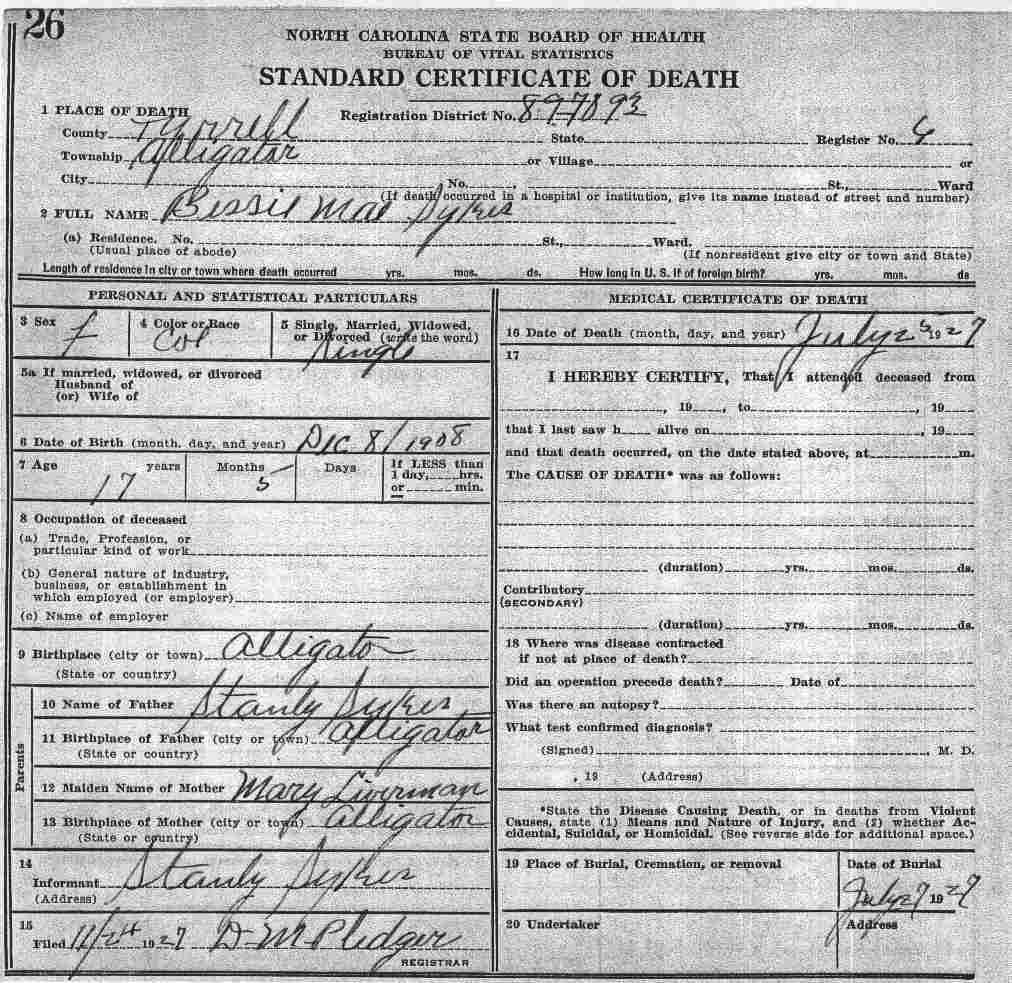 26
NORTH CAROLINA STATE BOARD OF HEALTH
BUREAU OF VITAL STATISTICS
STANDARD CERTIFICATE OF DEATH
1 PLACE OF DEATH Registration District No. 897893
County Tyrrell State Register No. 6
Township Alligator or Village or
City No. , St., Ward
(If death occurred in a hospital or institution, give its name instead of street and number)
2 FULL NAME Bessie Mae Sykes
(a) Residence. No. St., Ward.
(Usual place of abode) (If nonresident give city or town and State)
Length of residence in city or town where death occurred yrs. mos. ds. How long in U. S. if of foreign birth? yrs. mos. ds
PERSONAL AND STATISTICAL PARTICULARS
3 Sex f 4 Color or Race Col 5 Single, Married, Widowed, or Divorced (write the word) Single
5a If married, widowed, or divorced
Husband of
(or) Wife of
6 Date of Birth (month, day, and year) Dec 8/1908
7 Age years Months Days If LESS than
1 day, hrs.
or min.
17 5
8 Occupation of deceased
(a) Trade, Profession, or
particular kind of work
(b) General nature of industry,
business, or establishment in
which employed (or employer)
(c) Name of employer
9 Birthplace (city or town) Alligator
(State or country)
Parents
10 Name of Father Stanly Sykes
11 Birthplace of Father (city or town) Alligator
(State or country)
12 Maiden Name of Mother Mary Liverman
13 Birthplace of Mother (city or town) Alligator
(State or country)
14
Informant Stanly Sykes
(Address)
15
Filed 11/24 1927 D M Pledger
REGISTRAR
MEDICAL CERTIFICATE OF DEATH
16 Date of Death (month, day, and year) July 25 1927
17
I HEREBY CERTIFY, That I attended deceased from
, 19 , to , 19
that I last saw h alive on , 19
and that death occurred, on the date stated above, at m.
The CAUSE OF DEATH* was as follows:
(duration) yrs. mos. ds.
Contributory
(SECONDARY)
(duration) yrs. mos. ds.
18 Where was disease contracted
if not at place of death?
Did an operation precede death? Date of
Was there an autopsy?
What test confirmed diagnosis?
(Signed) , M. D.
, 19 (Address)
*State the Disease Causing Death, or in deaths from Violent
Causes, state (1) Means and Nature of Injury, and (2) whether Ac-
cidental, Suicidal, or Homicidal. (See reverse side for additional space.)
19 Place of Burial, Cremation, or removal Date of Burial
July 27 1927
20 Undertaker Address